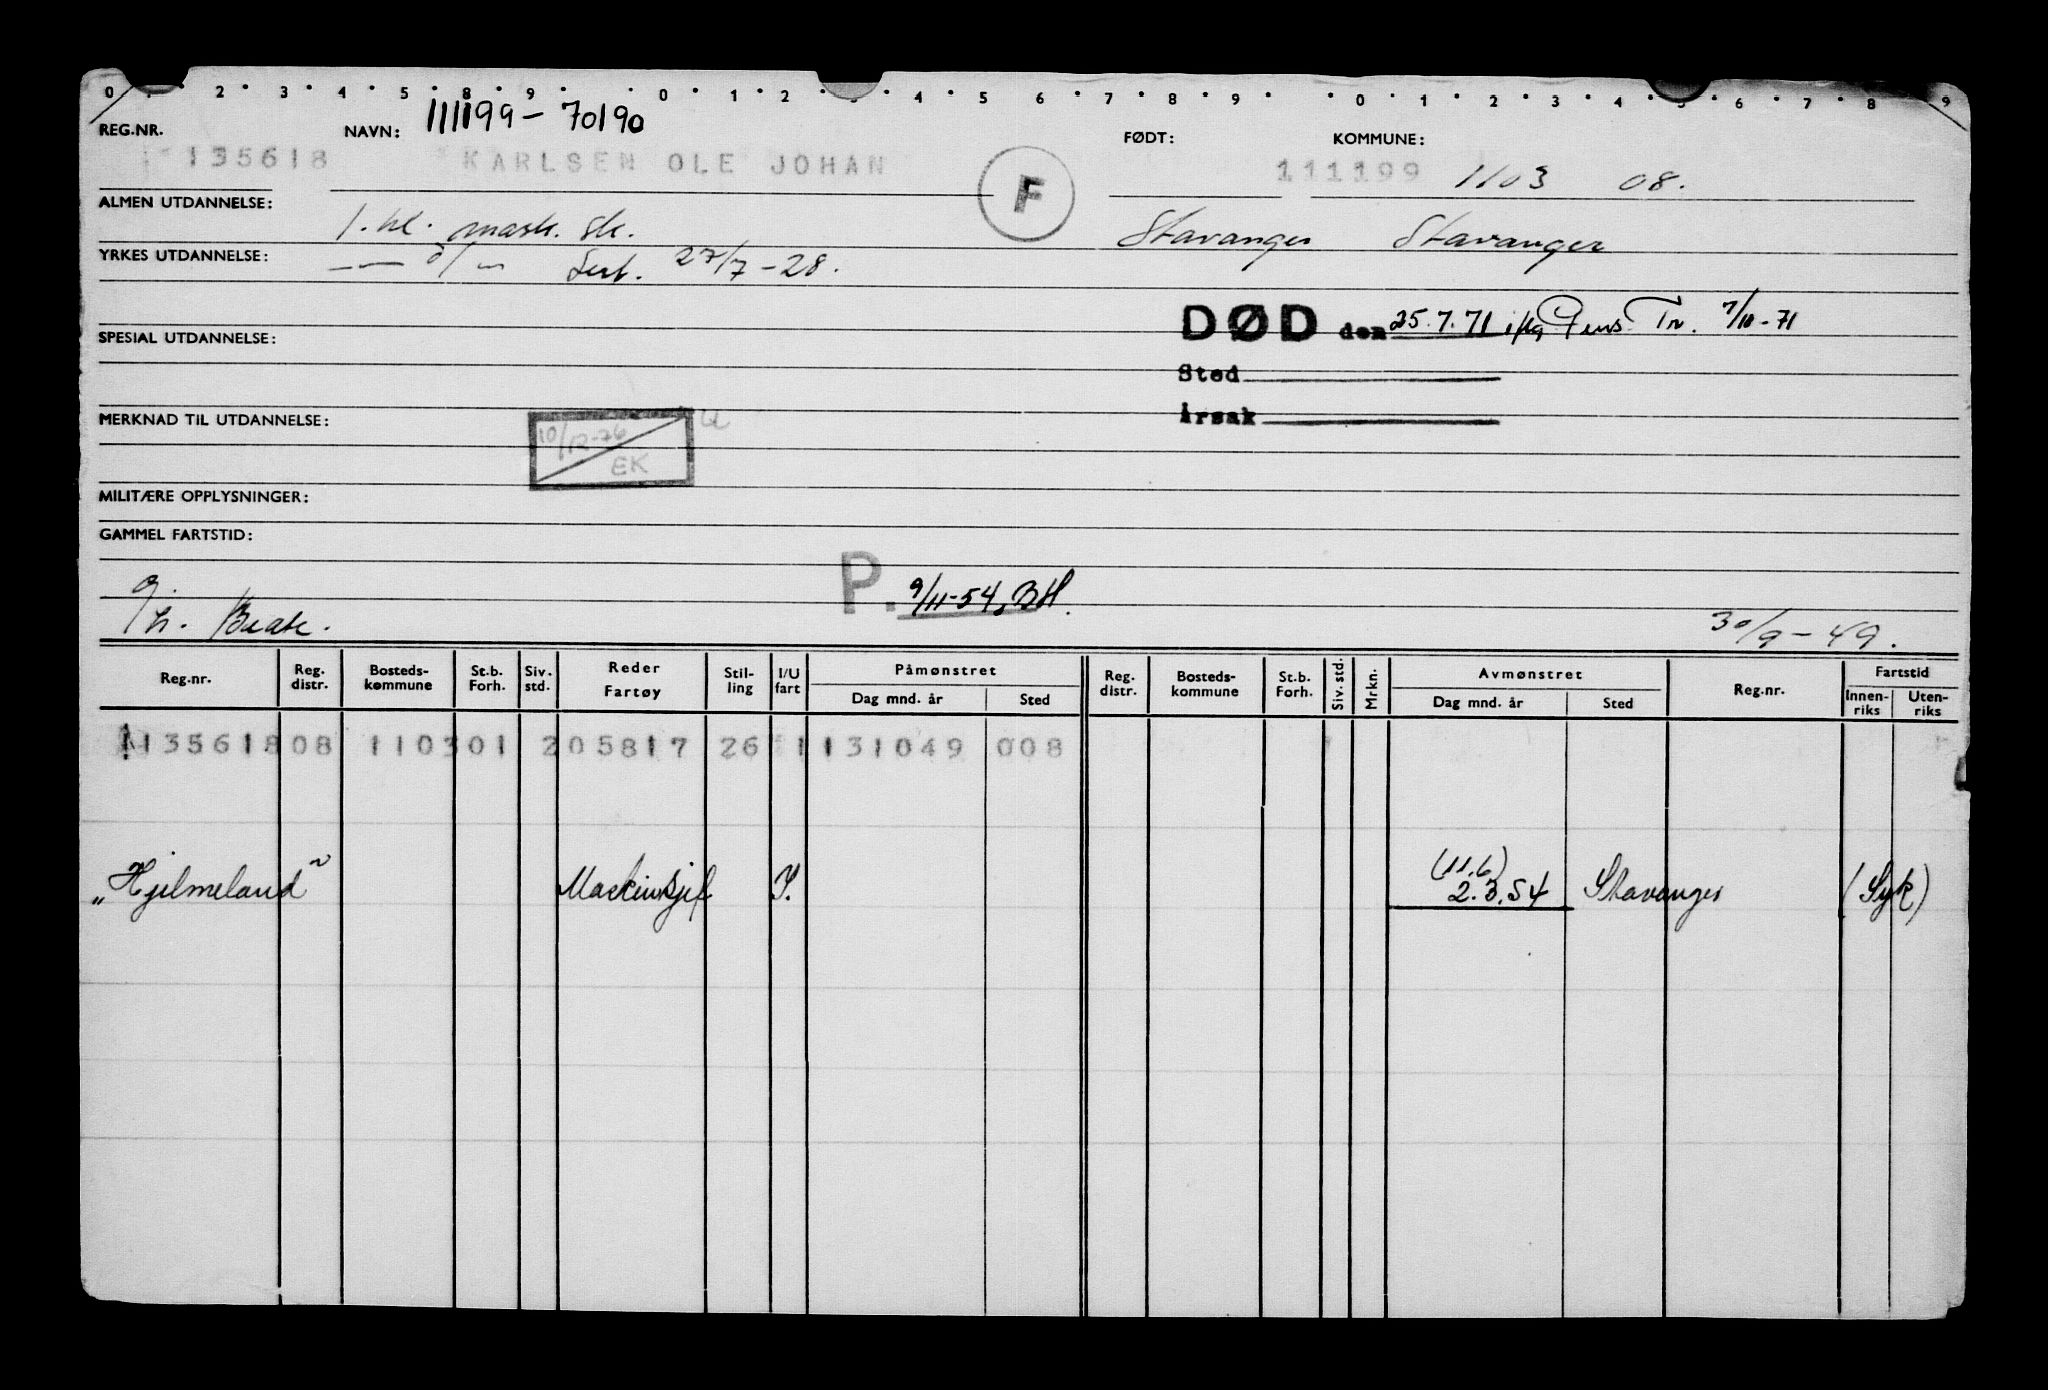 0 . . 2 . 3 . 4 . 5 . 8 . 9 . . 0 . 1 . 2 . . 4 . 5 . 6 . 7 . 8 . 9 . . 0 . 1 . 2 . 3 . 4 . 5 . 6 . 7 . 8 . 9
REG.NR. NAVN: 111199-70190 FØDT: KOMMUNE:
135618 KARLSEN OLE JOHAN F 111199 1103 08.
ALMEN UTDANNELSE: 1. kl. mask. sk. Stavanger Stavanger
YRKES UTDANNELSE: sert. 27/7-28.
DØD den 25.7.71 iflg Pens. Tr. 7/10-71
SPESIAL UTDANNELSE:
Sted
MERKNAD TIL UTDANNELSE: Årsak
10/12-76
EK
MILITÆRE OPPLYSNINGER:
GAMMEL FARTSTID:
P. 9/11-54, BH.
Beate. 30/9-49.
Reg.nr. Reg. distr. Bosteds-kommune St.b. Forh. Siv. std. Reder Fartøy Stil-ling I/U fart Påmønstret Dag mnd. år Sted Reg. distr. Bosteds-kommune St.b. Forh. Siv. std. Mrkn. Avmønstret Dag mnd. år Sted Reg.nr. Fartstid Innen-riks Uten-riks
113561808 110301 205817 26 1 131049 008
"Hjelmeland" Maskinsjef I. (11.6) 2.3.54 Stavanger (Syk)